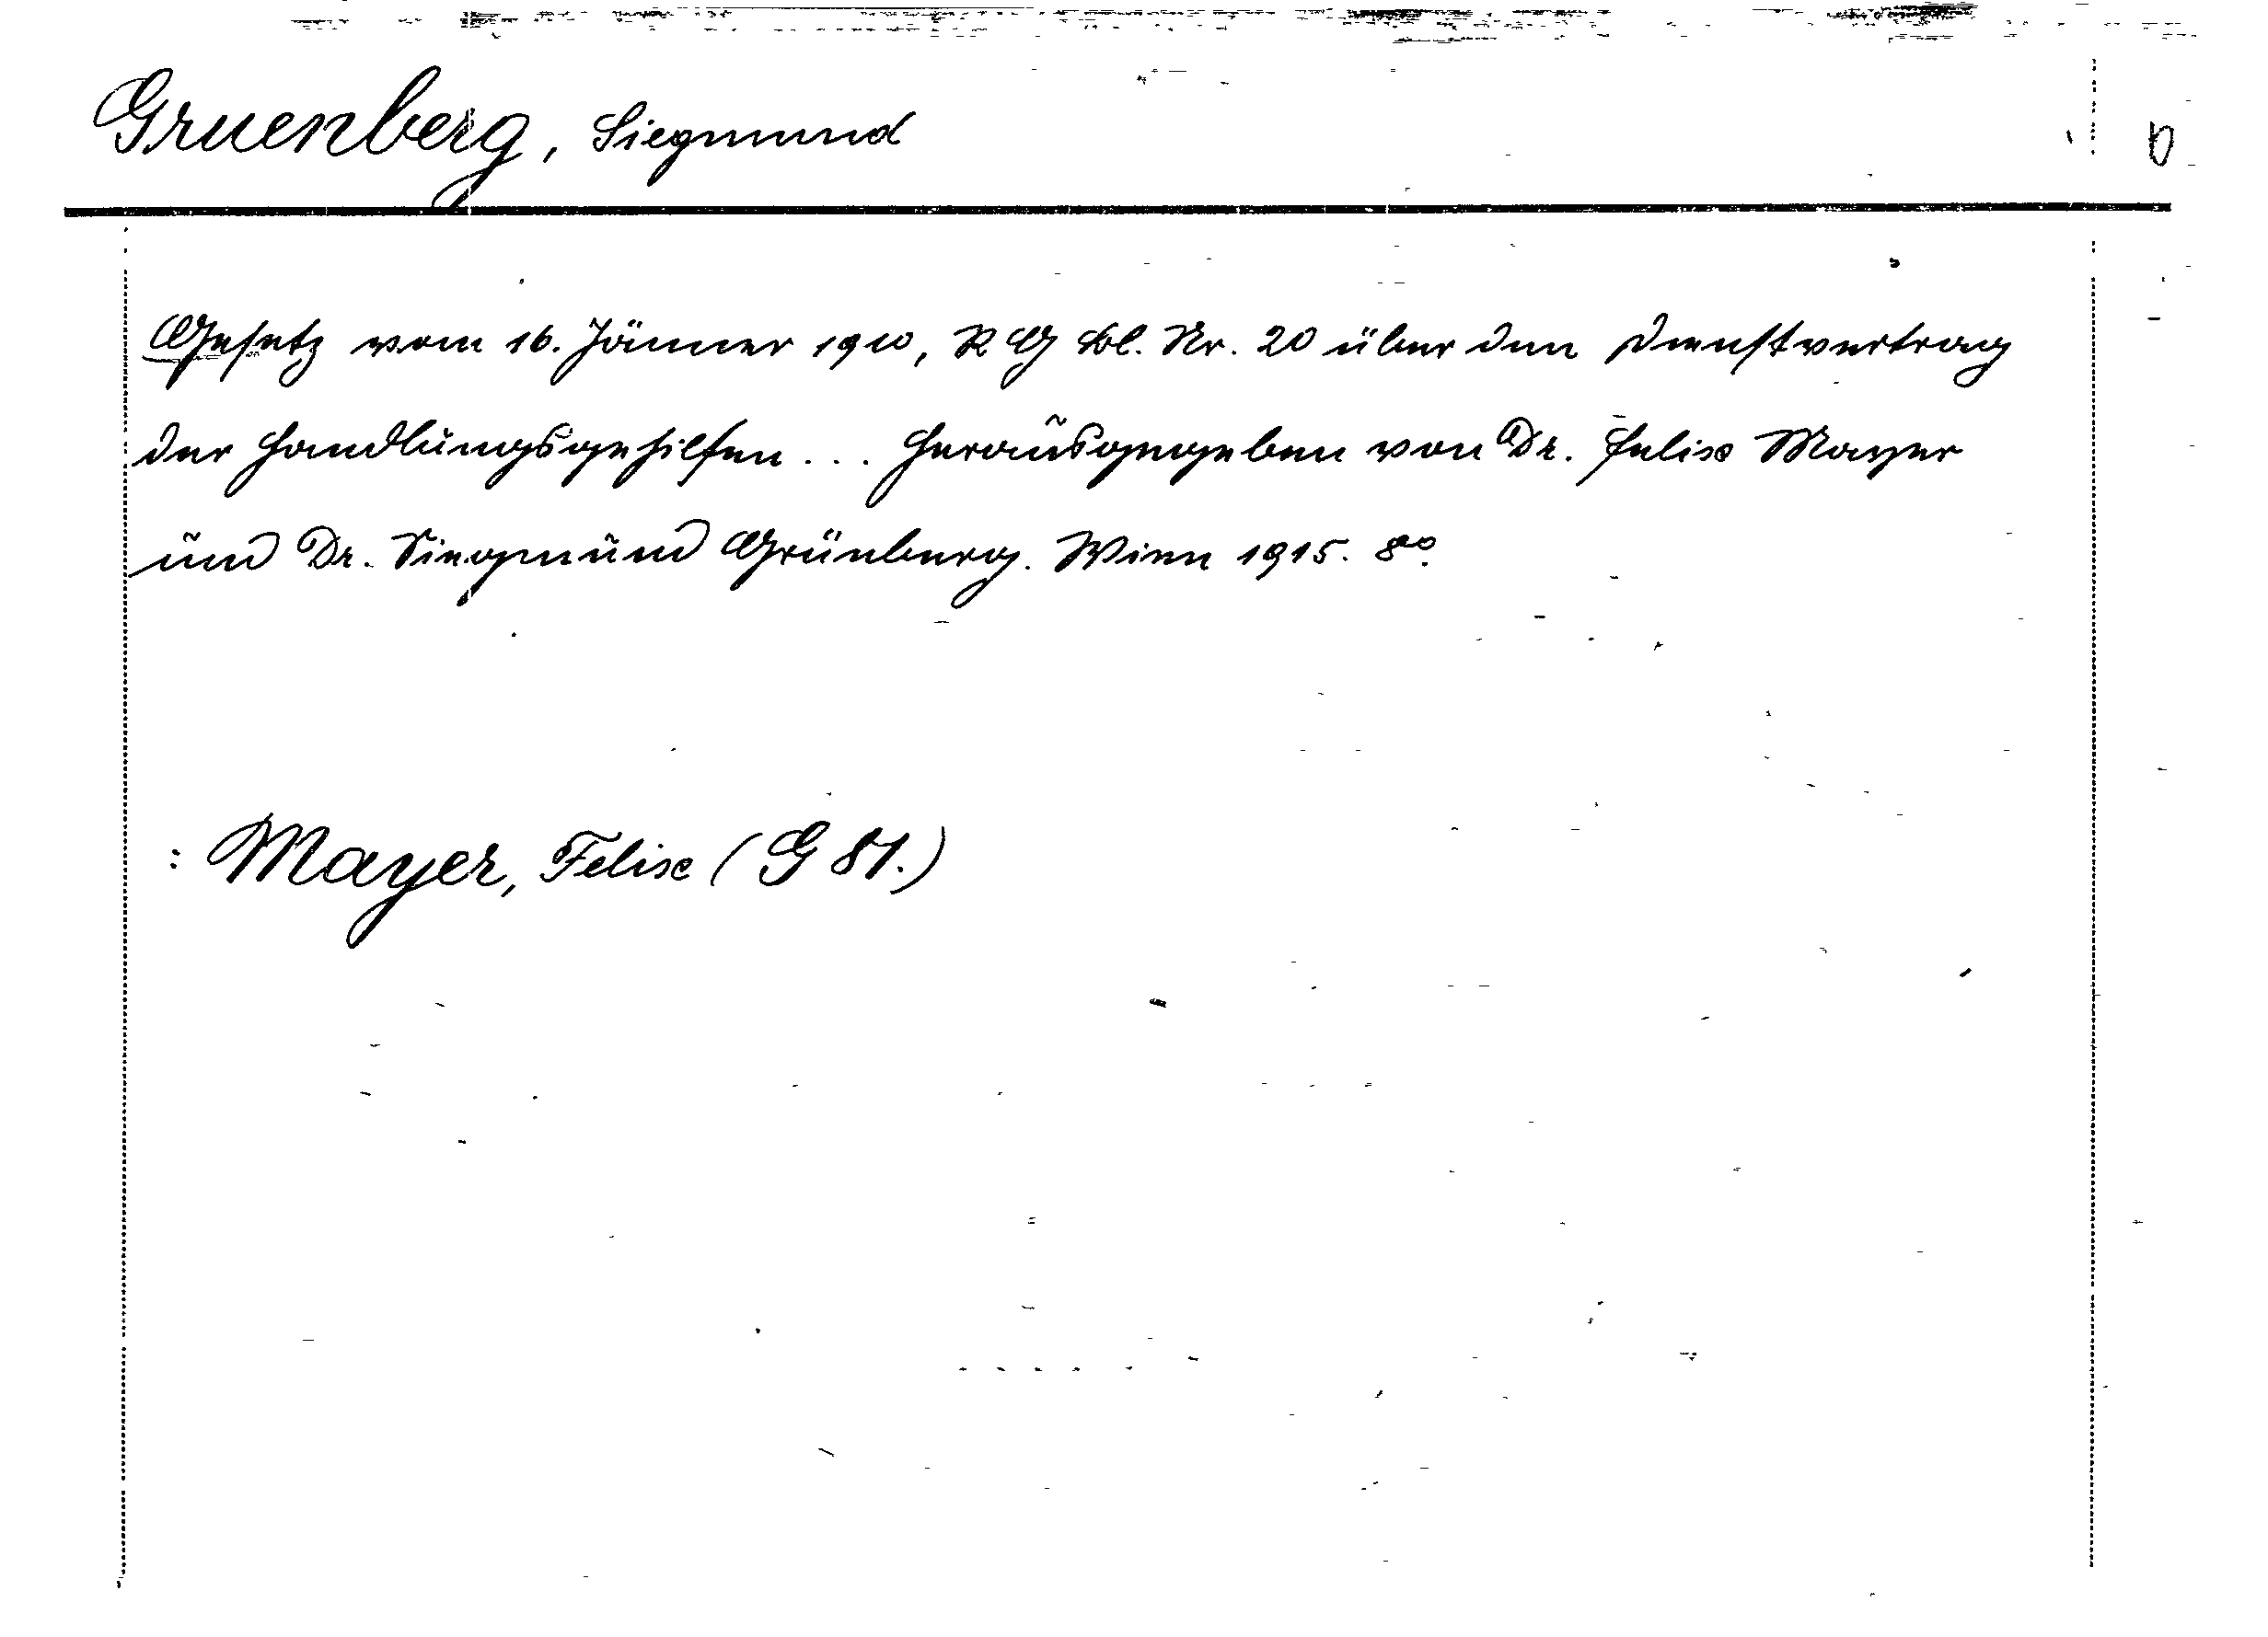 Gruenberg, Siegmund
Gesetz vom 16. Jänner 1910, RGBl. Nr. 20 über den Dienstvertrag
der Handlungsgehilfen... Herausgegeben von Dr. Felix Mayer
und Dr. Siegmund Grünberg. Wien 1915. 8°.
: Mayer, Felix (G 81.)